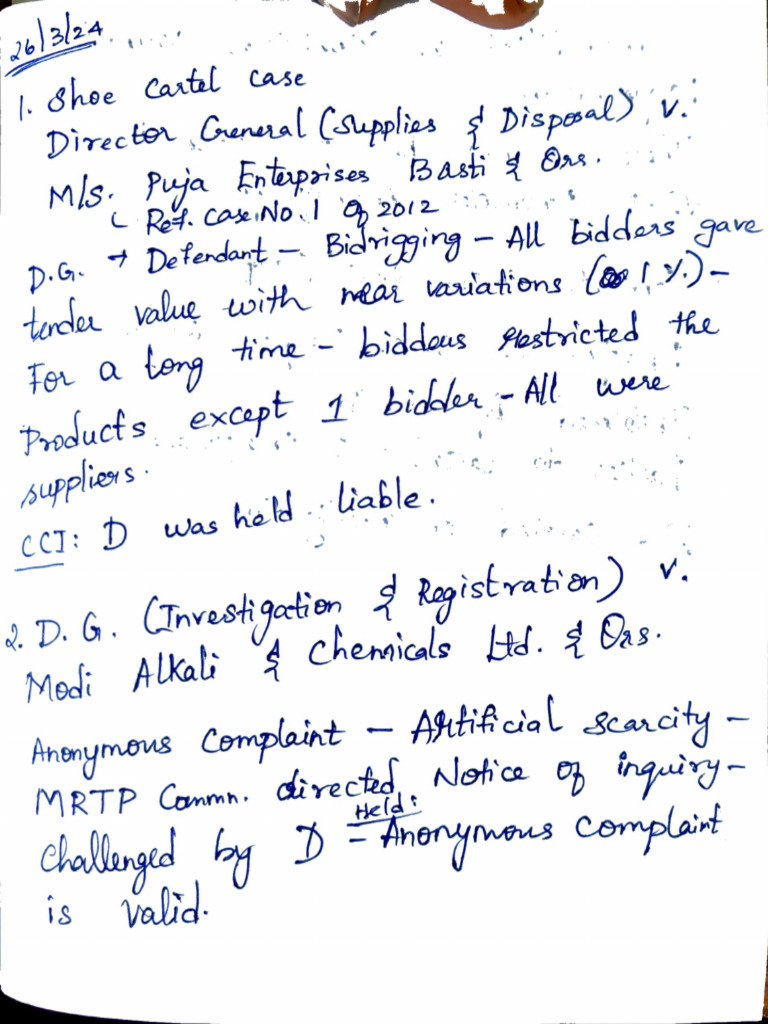 26/3/24
1. Shoe Cartel Case
Director General (Supplies & Disposal) v.
M/s. Puja Enterprises Basti & Ors.
( Ref. Case No. 1 of 2012
D.G. → Defendant - Bidrigging - All bidders gave
tender value with near variations (1%) -
For a long time - bidders restricted the
Products except 1 bidder - All were
suppliers.
CCI: D was held liable.
2. D. G. (Investigation & Registration) v.
Modi Alkali & Chemicals Ltd. & Ors.
Anonymous Complaint - Artificial scarcity -
MRTP Commn. directed Notice of inquiry -
Held:
Challenged by D - Anonymous complaint
is valid.